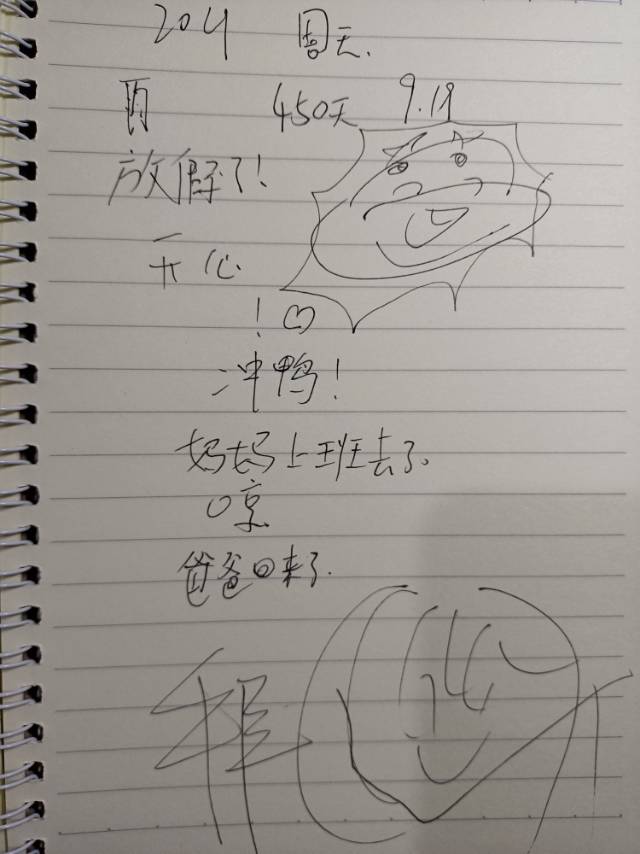 204 周天.
450天 9.19
放假了!
开心
!
冲鸭!
妈妈上班去了。
哼
爸爸回来了.